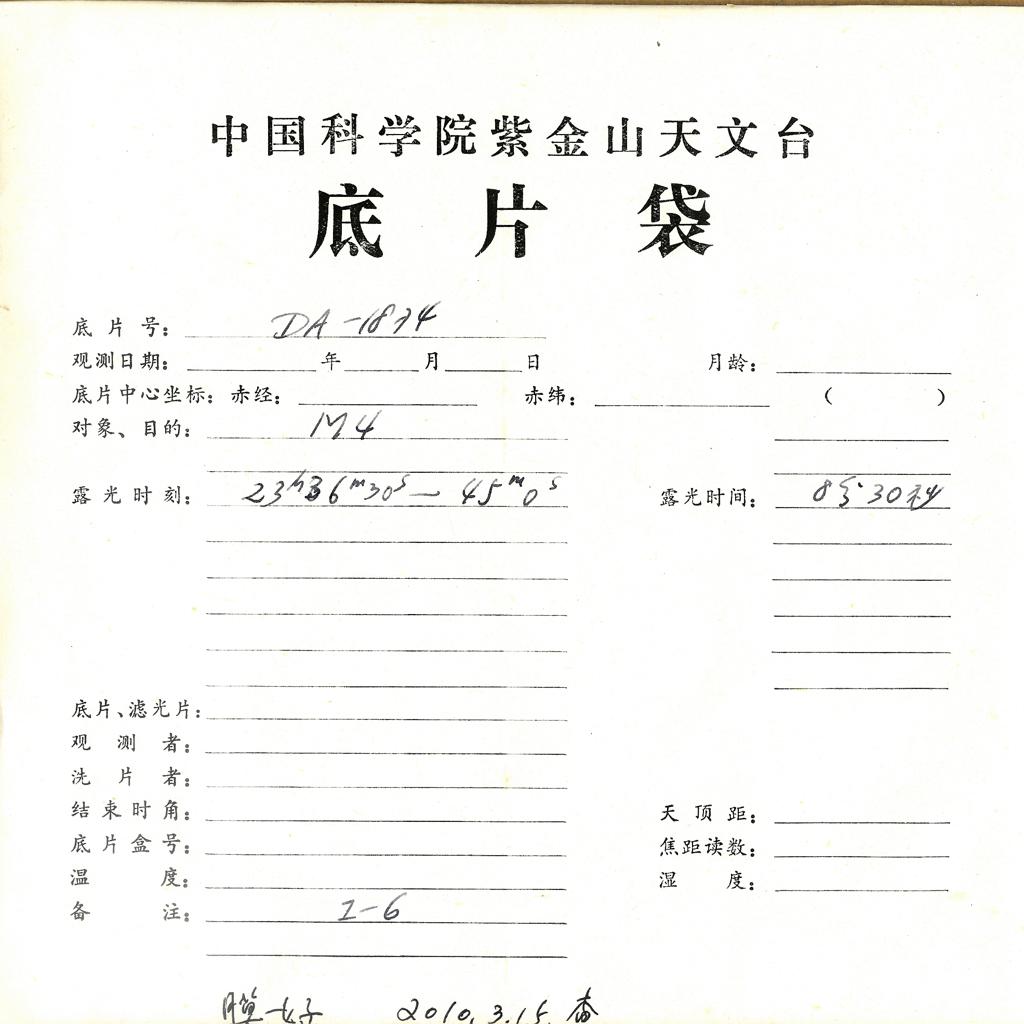 中国科学院紫金山天文台
底片袋
底片号： DA-1874
观测日期： 年 月 日 月龄：
底片中心坐标：赤经： 赤纬： （ ）
对象、目的： M4
露光时刻： 23h36m30s — 45m0s 露光时间： 8分30秒
底片、滤光片：
观测者：
洗片者：
结束时角： 天顶距：
底片盒号： 焦距读数：
温度： 湿度：
备注： I-6
膜好 2010.3.15. 查